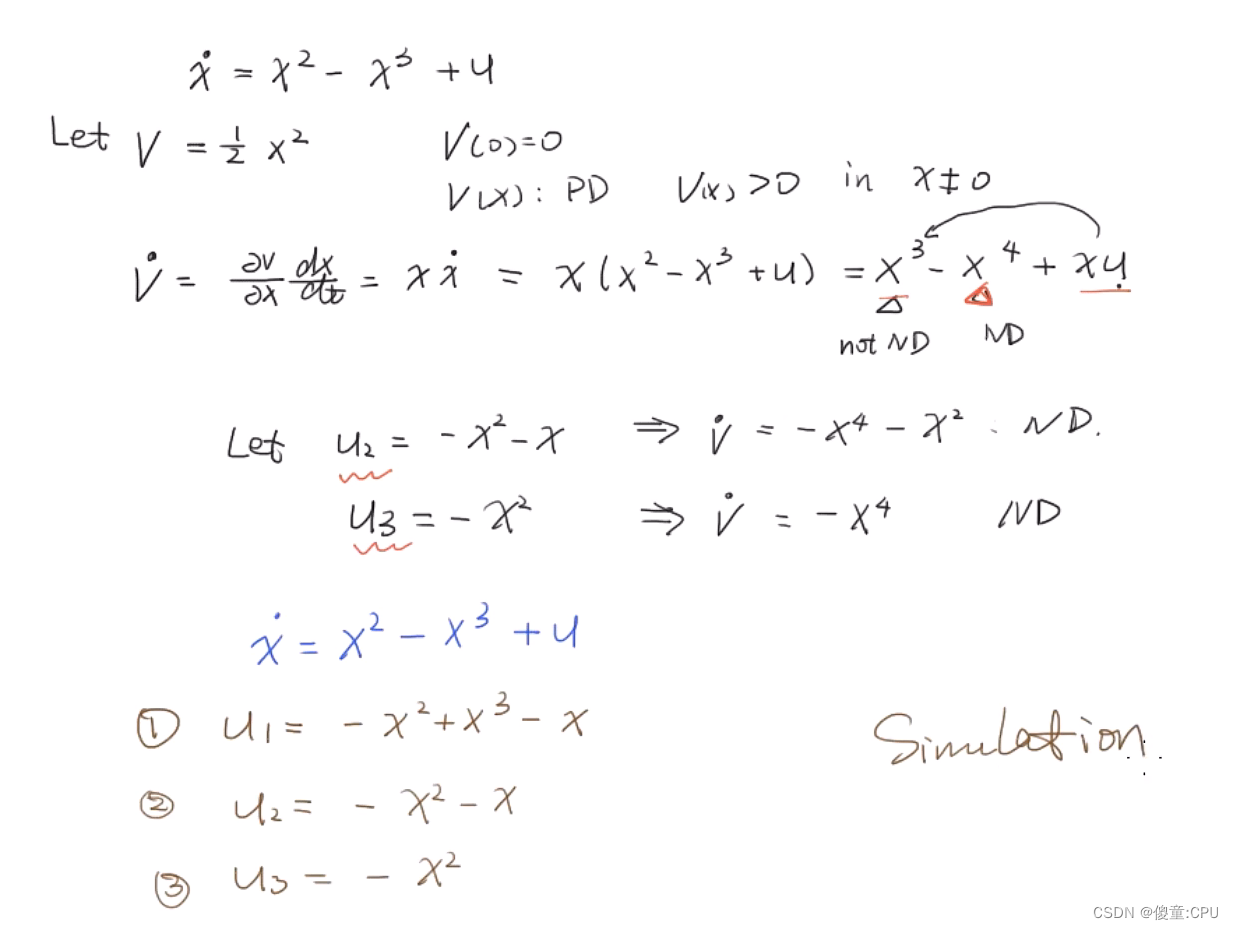 ẋ = x² - x³ + u
Let V = 1/2 x² V(0)=0
V(x): PD V(x)>0 in x≠0
V̇ = ∂V/∂x dx/dt = xẋ = x(x² - x³ + u) = x³ - x⁴ + xu
not ND ND
Let u₂ = -x² - x ⇒ V̇ = -x⁴ - x². ND.
u₃ = -x² ⇒ V̇ = -x⁴ ND
ẋ = x² - x³ + u
① u₁ = -x² + x³ - x
Simulation
② u₂ = -x² - x
③ u₃ = -x²
CSDN @傻童:CPU